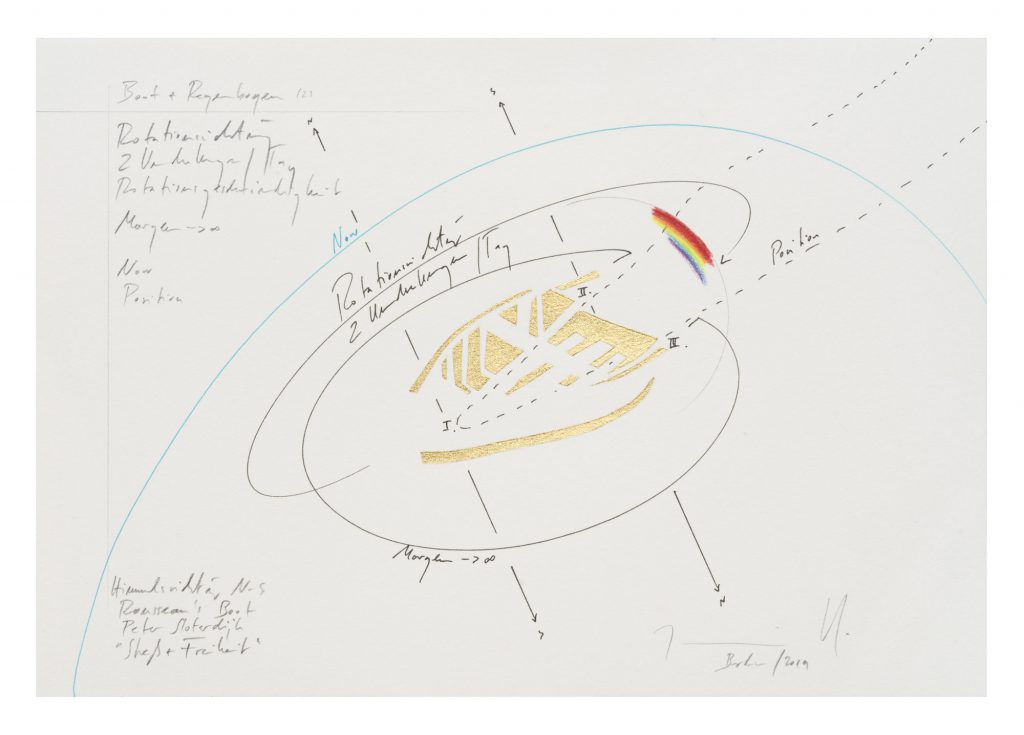 Boot + Regenbogen (2)
Rotationsrichtung
2 Umdrehungen/Tag
Rotationsgeschwindigkeit
Morgen -> ∞
Now
Position
N
S
Now
Rotationsrichtung
2 Umdrehungen/Tag
Position
II.
III.
I.
Morgen -> ∞
S
N
Himmelsrichtung N-S
Rousseau's Boot
Peter Sloterdijk
"Streß + Freiheit"
Berlin/2019